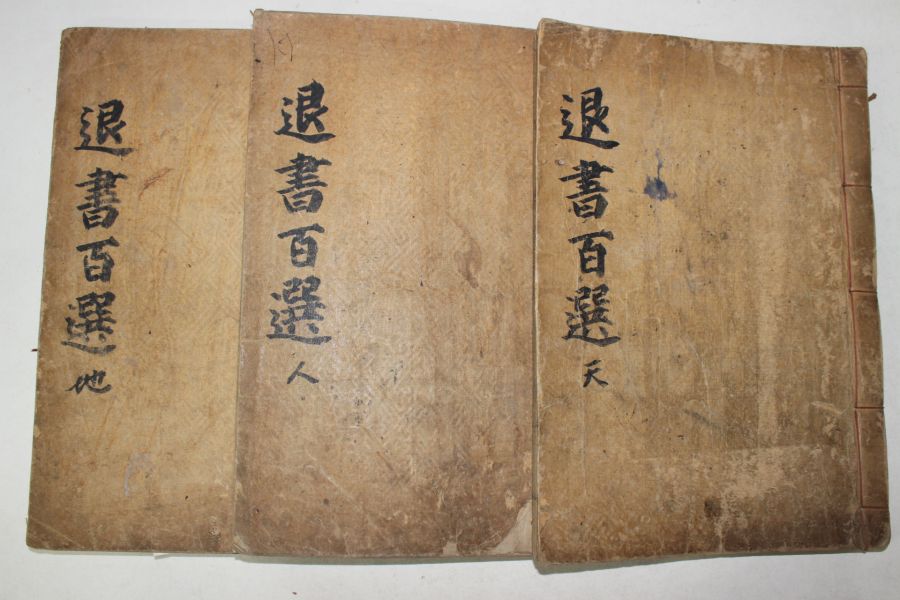 退書百選
天
退書百選
人
退書百選
地